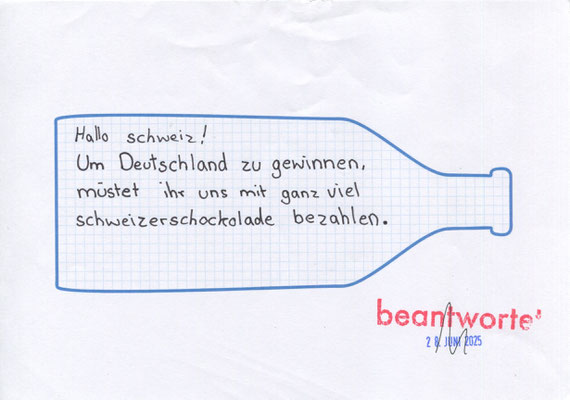 Hallo schweiz!
Um Deutschland zu gewinnen,
müstet ihr uns mit ganz viel
schweizerschockolade bezahlen.
beantworte
JUNI 2025